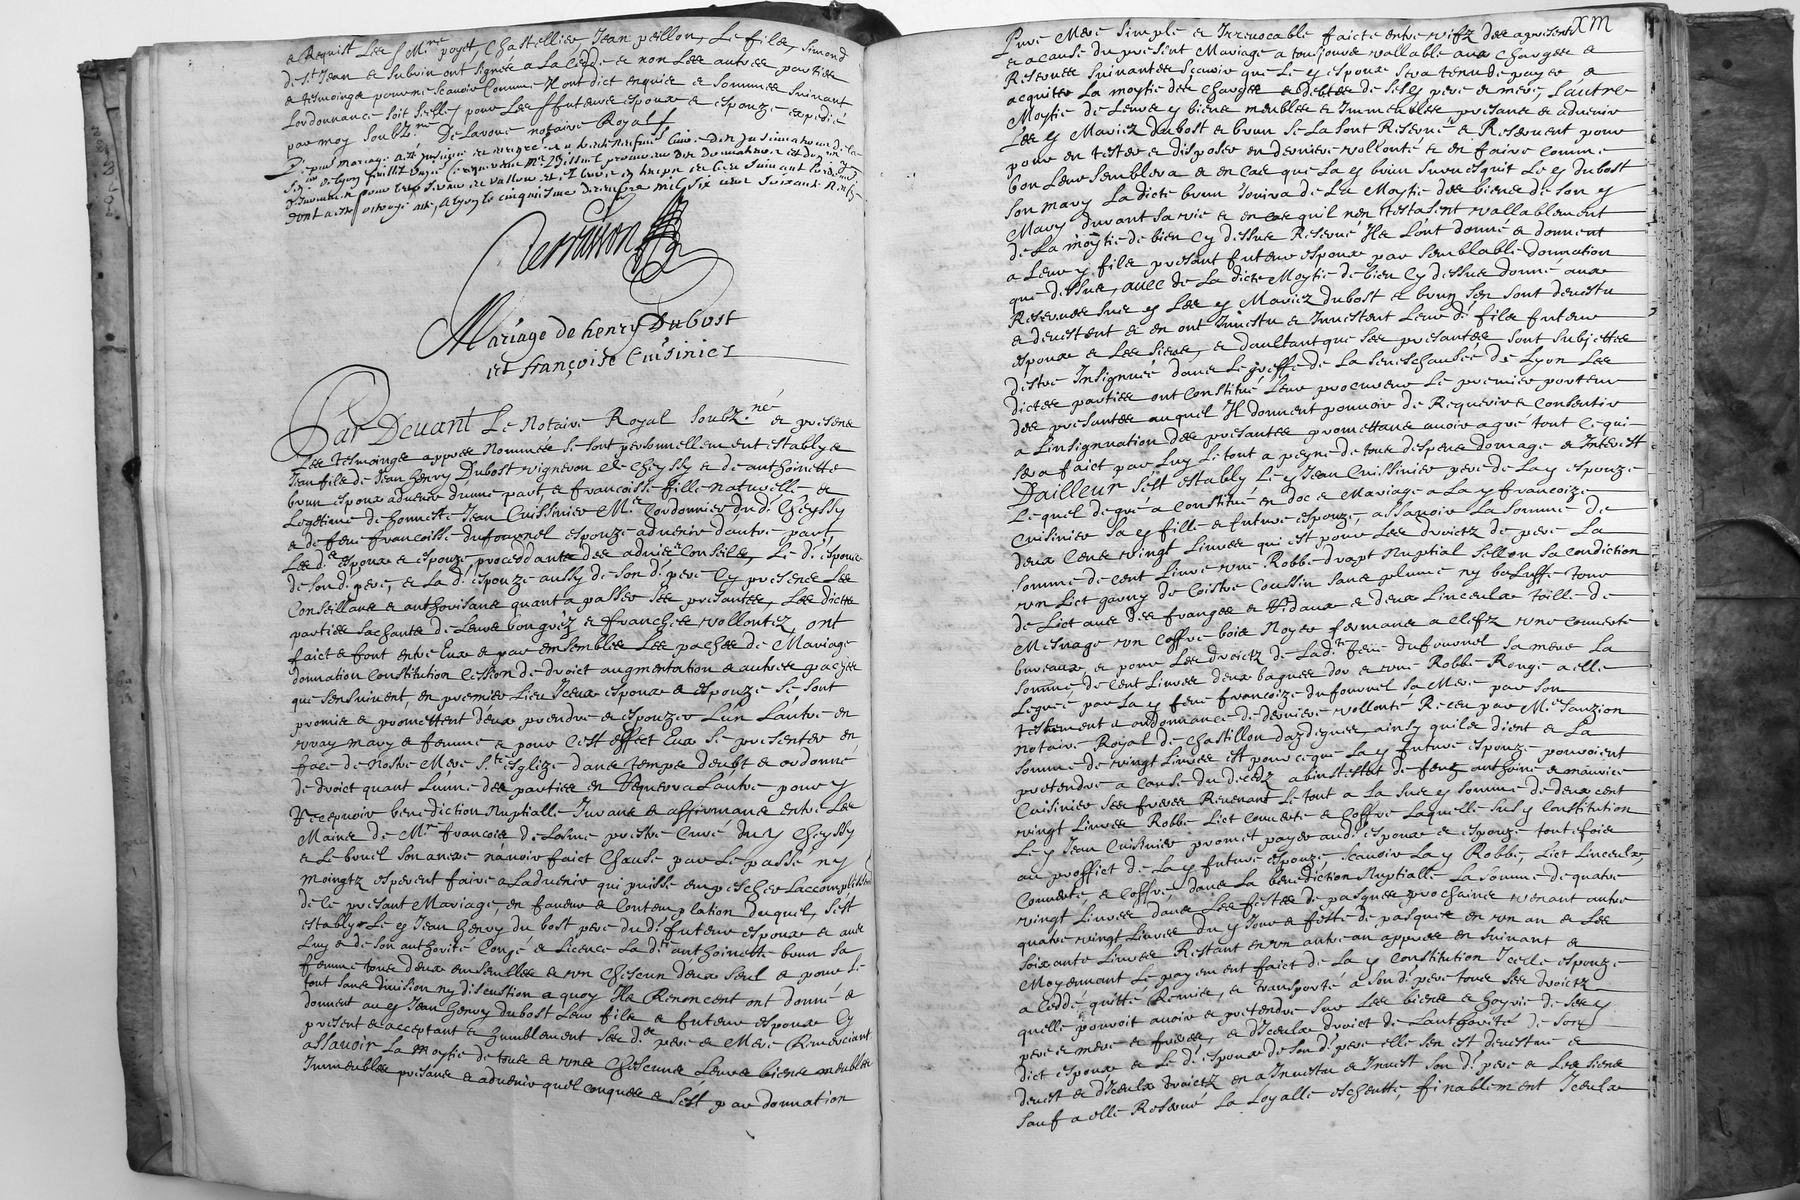 a Requist Les s Mre poyet, Chastellier Jean peillon, Le fils, Simond
de St Jean & Subrin ont signés a La Cedde & non Les autres parties
& tesmoings pour ne scavoir Comme Il ont dict enquis & sommés suivant
Lordonnance soit seelles pour Les s futeurs espoux & espouze expedié
par moy soubzné Delavoue notaire Royal
Mariage de henry Dubost
et françoise Cuisinier
Par Devant Le Notaire Royal soubz.né & presens
Les tesmoings appres Nommés se sont personnellement establys
Jean fils de Jean henry Dubost vigneron de Cheyssy & de anthoinette
brun espoux advenir d'une part, & francoisse fille naturelle &
Legetime de honneste Jean Cuissinier Me Cordonnier dud. Cheyssy
& de feue francoisse dufournel espouze advenir d'autre part
Les ds espoux & espouze, proceddants des advis & Conseils, Le d. espoux
de son d. pere, & La d. espouze aussy de son d. pere Cy presens Les
Conseillans & anthorisans quant a passer Ses presantes, Les dictes
parties sachants de Leurs bon grez & franches vollontez ont
faict & font entre Eux & par ensembles Les paches de Mariage
donnation Constitution Cession de droict augmentation & autres paches
que sensuivent, en premier Lieu Iceux espoux & espouze se sont
promis & promettent d'eux prendre & espouzer L'un L'autre en
vray mary & femme & pour Cest effect Eux se presenter en
face de Nostre Mere Ste esglize dans temps deubt & ordonné
de droict quant L'une des parties en Requerra L'autre pour y
Recepvoir benediction Nuptialle Jurans & affirmans entre Les
Mains de Mre francois de Lorme prestre Curé du y Cheyssy
& Le breuil son anexe n'avoir faict Chause par Le passé ny
moingtz esperent faire a Ladvenir qui puisse empescher Laccomplissement
de Le presant Mariage, en faveur & Contemplation duquel, s'est
estably Le y Jean henry du bost pere du d. futeur espoux & avec
Luy & de son authorité Congé & Licence La dte anthoinette brun sa
femme tous deux ensembles & un Chescun d'eux seul & pour Le
tout sans division ny discustion a quoy Ils Renoncent ont donné &
donnent au y Jean henry dubost Leur fils & futeur espoux Cy
present & acceptant & humblement Ses ds pere & Mere Remerciant
assavoir La moytié de tous & uns Chescuns Leurs biens meubles
Immeubles presans & advenir quel Conques & s'est par donnation
XIII
Pure Mere simple & Irrevocable faicte entre vifz des apresent
& a cause du present Mariage a toujours vallable aux Charges &
Reserves suivantes scavoir que Le y espoux sera tenu de payer &
acquiter La moytié des Charges & debtes de sesy pere & mere, L'autre
Moytié de Leurs y biens meubles & Immeubles presans & advenir
Les y Mariez Dubost & brun se La sont Reservé & Reservent pour
pour en tester & disposer en derniere vollonté & en faire Comme
bon Leur semblera & en Cas que La y brun survesquit Le y dubost
son mary La dicte brun Jouira de La Moytié des biens de son y
Mary durant sa vie & en cas qu'il n'en testasent vallablement
de La moytié de bien Cy dessus Reservé Ils L'ont donné & donnent
a Leur y fils presant futeur espoux par semblable donnation
que dessus, avec de La dicte Moytié de bien Cy dessus donné aux
Reserves sus y Les y Mariez dubost & brun s'en sont devestu
& devestent & en ont Investu & Investent Leur d. fils futeur
espoux & Les siens, & d'aultant que Ses presantes sont subjettes
d'estre Insignués dans Le greffe de La seneschaussée de Lyon Les
dictes parties ont Constitué Leur procureur Le premier porteur
des presantes auquel Il donnent pouvoir de Requerir & Consentir
a L'insignuation des presantes promettans avoir agré tout Ce qui
sera faict par Luy Le tout a peyne de tous despens domage & Interest
D'ailleur s'est estably Le y Jean Cuissinier pere de La y espouze
Lequel de gré a Constitué en doc & Mariage a La y francoize
Cuisinier sa y fille & futeure espouze, assavoir La somme de
deux Cens vingt Livres qui est pour Les droictz de pere La
somme de cent Livre une Robbe drapt Nuptial sellon sa condiction
un Lict garny de Coistre Coussin sans plume ny baluffe tour
de Lict avec des franges & Ridaux & deux Linceulx toille de
Mesnage un Coffre bois Noyer fermant a Clefz une Couverte
bureaux & pour Les droictz de Ladte feue dufournel sa mere La
somme de cent Livres deux bagues d'or & une Robbe Rouge a elle
Legués par La y feue francoize dufournel sa Mere par son
testement & ordonnance de derniere vollonté Receu par Me Sanzion
notaire Royal de Chastillon dazergues, ainsy quils dient & La
somme de vingt Livres est pour Ce que La y futeure espouze pouvoient
pretendre a Cause du decedz abintestat de feuz anthoine & maurice
Cuisinier Ses freres Revenant Le tout a La sus y somme de deux cent
vingt Livres Robbe Lict Couverte & Coffre Laquelle sus y Constitution
Le y Jean Cuisinier promet payer aud. espoux & espouze toutefois
au proffict de La y futeure espouze, scavoir La y Robbe, Lict Linceulx
Couverte, & Coffre dans La benediction Nuptialle La somme de quatre
vingt Livres dans Les festes de pasques prochains venant autre
quatre vingt Livres du y Jour & feste de pasques en un an & Les
soixante Livres Restant en un autre an appres en suivant &
Moyennant Le payement faict de La y Constitution Icelle espouze
a Ceddé quitté Remis, & transporté a son d. pere tous Ses droictz
quelle pouvoit avoir & pretendre sur Les biens & hoyrie de sesy
pere & mere & freres, & d'Iceulx droict de Lauthorité de son
dict espoux & Le d. espoux de son d. pere elle s'en est devestue &
devest & d'Iceulx droictz en a Investu & Invest son d. pere & Les siens
sauf a elle Reservé La Loyalle escheutte, finablement Iceulx